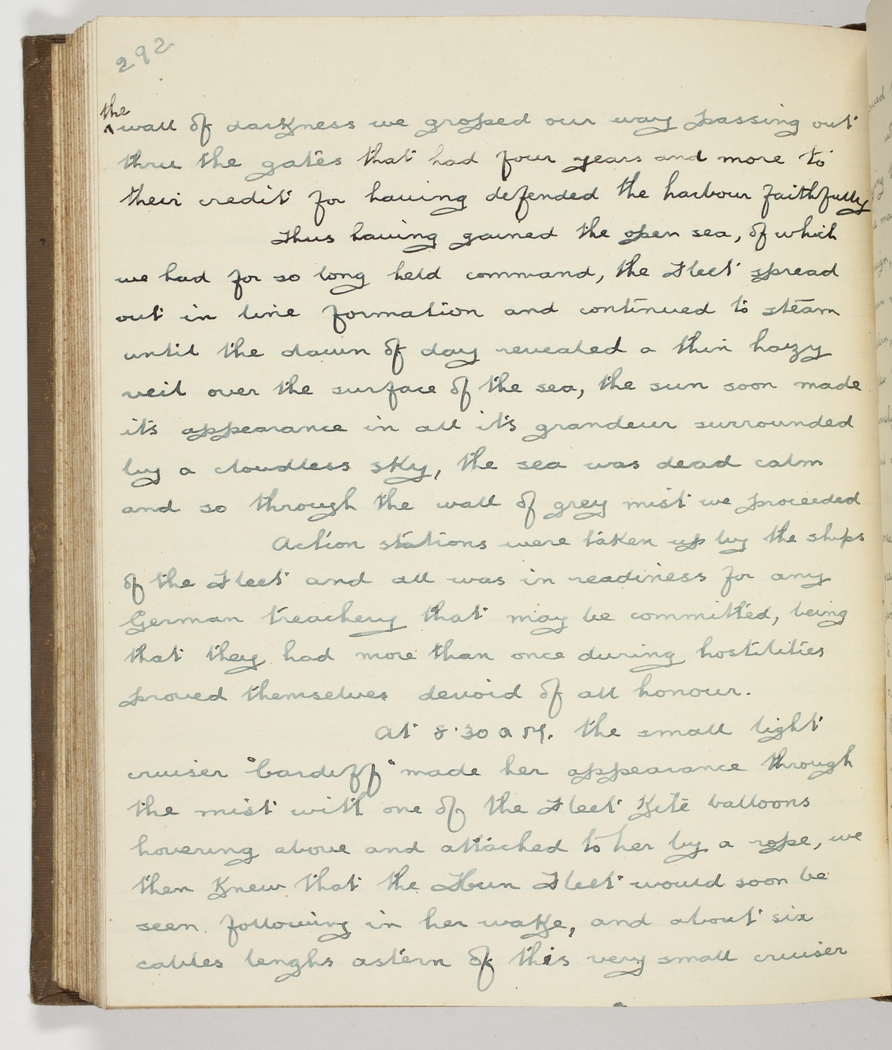 292
the
^wall of darkness we groped our way passing out
thru the gates that had four years and more to
their credit for having defended the harbour faithfully
Thus having gained the open sea, of which
we had for so long held command, the Fleet spread
out in line formation and continued to steam
until the dawn of day revealed a thin hazy
veil over the surface of the sea, the sun soon made
it's appearance in all it's grandeur surrounded
by a cloudless sky, the sea was dead calm
and so through the wall of grey mist we proceeded
Action stations were taken up by the ships
of the Fleet and all was in readiness for any
German treachery that may be committed, being
that they had more than once during hostilities
proved themselves devoid of all honour.
At 8.30 a M. the small light
cruiser "Cardiff" made her appearance through
the mist with one of the Fleet Kite balloons
hovering above and attached to her by a rope, we
then knew that the Hun Fleet would soon be
seen following in her wake, and about six
cables lenghs astern of this very small cruiser